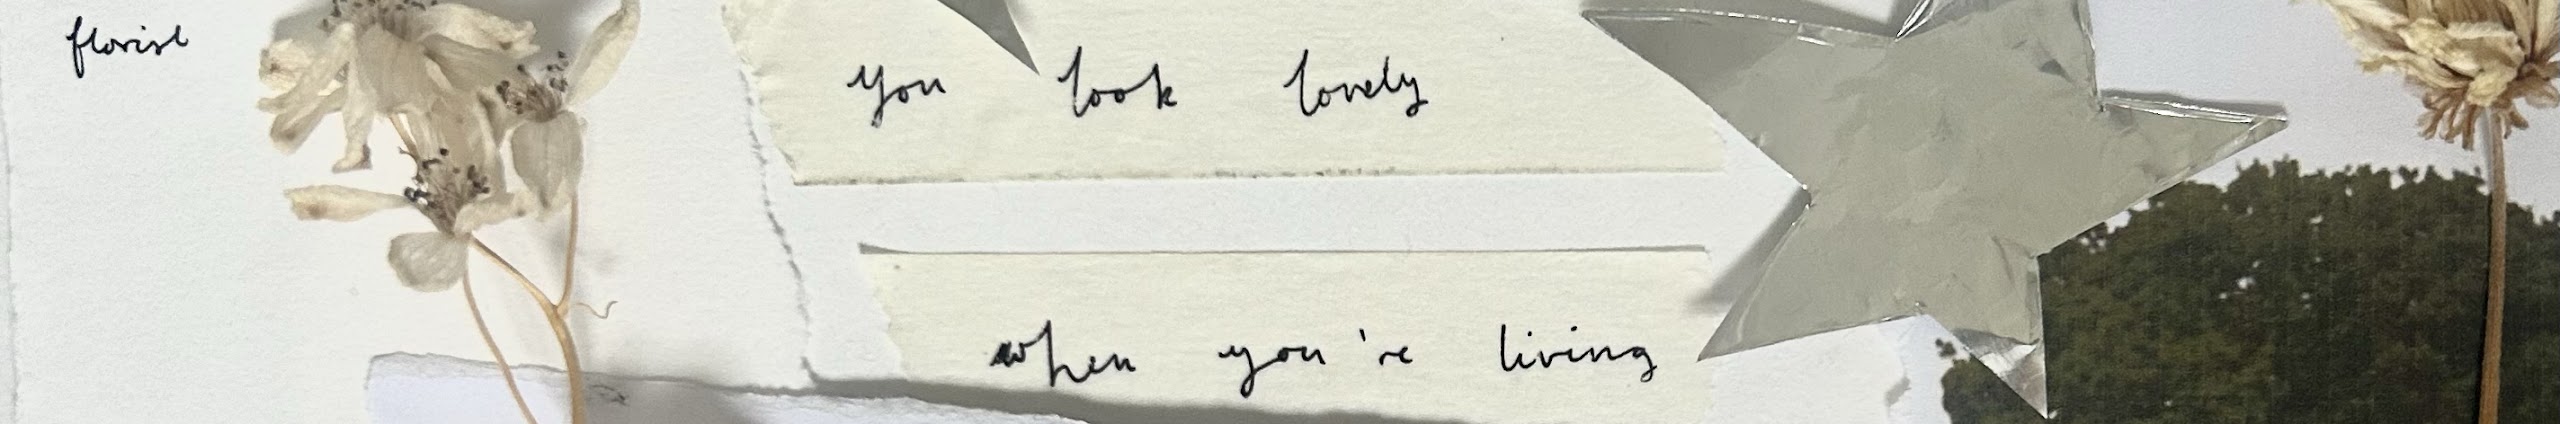 florist
you look lovely
when you're living